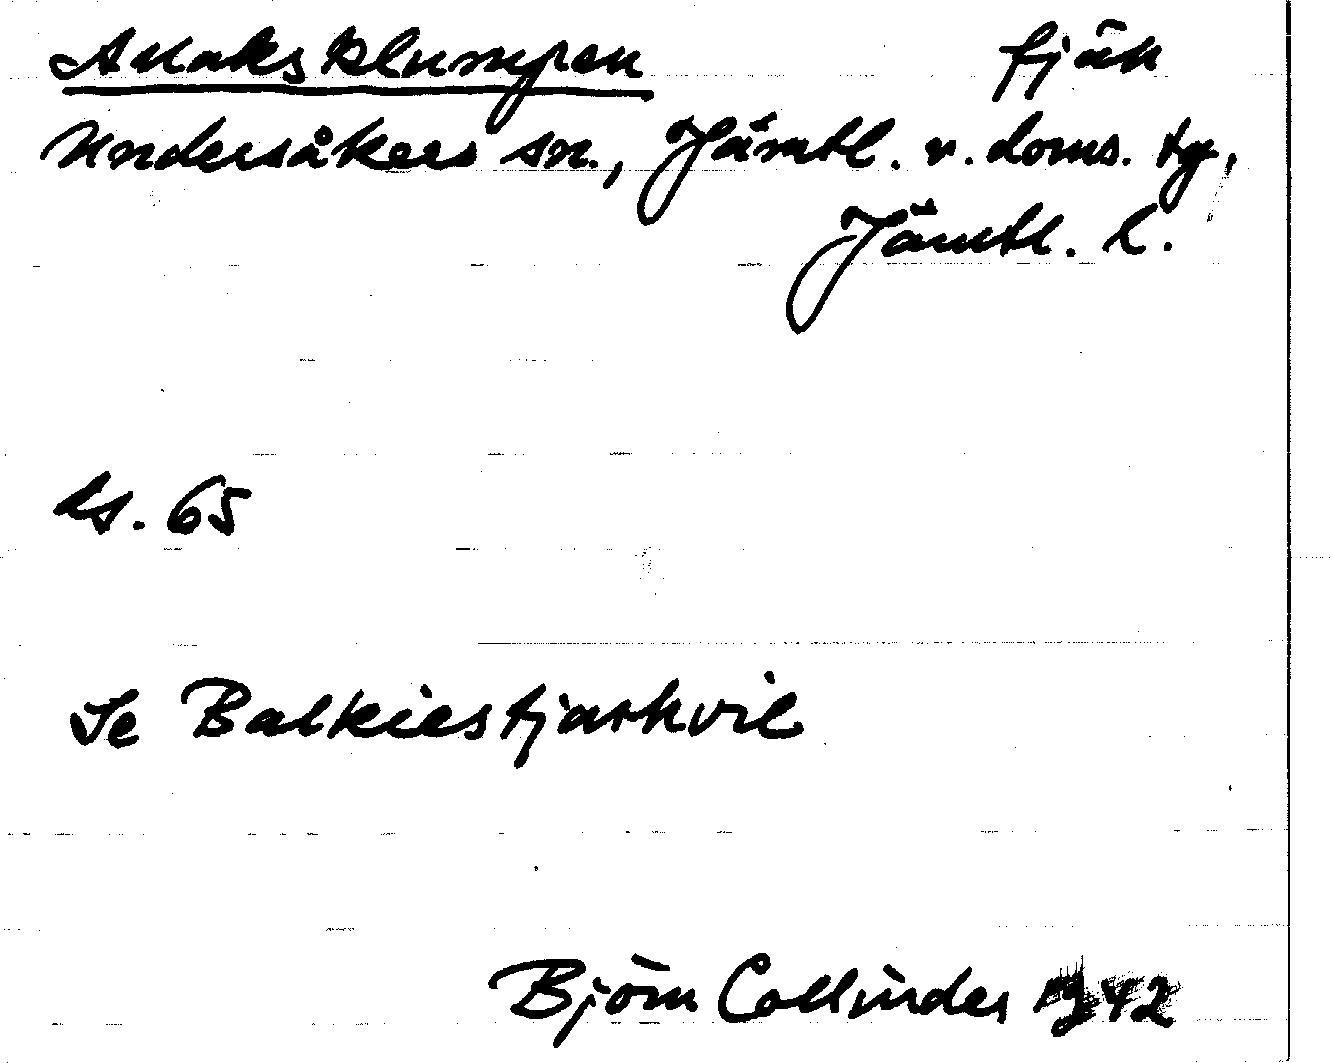 Allaksklumpen fjäll
Undersåkers sn., Jämtl. v. doms. tg,
Jämtl. l.
ds. 65
Se Balkiestjarkvil
Björn Collinder 1942